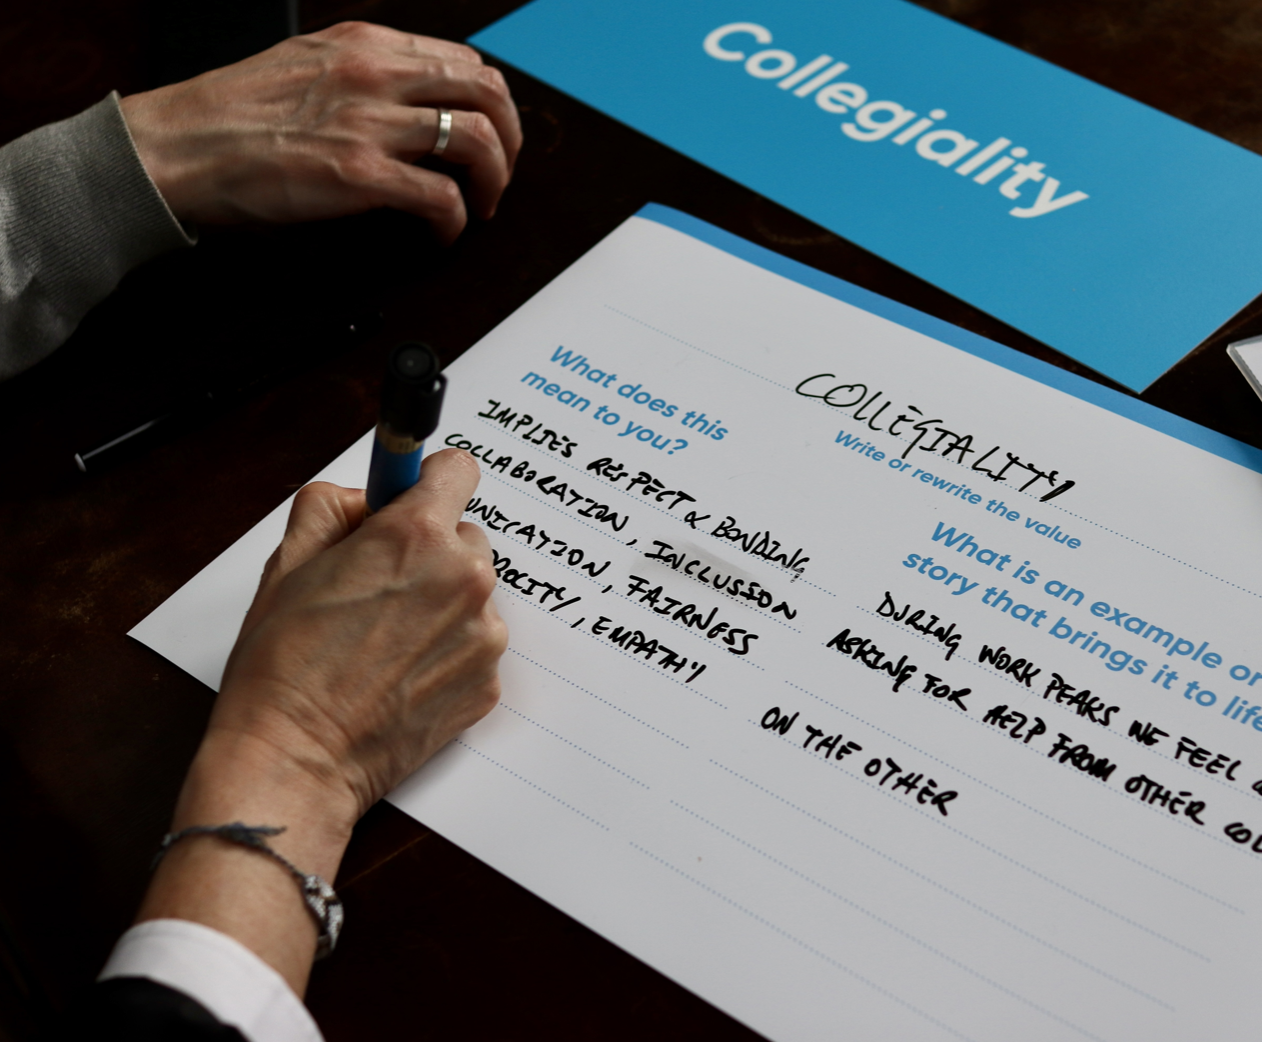 Collegiality
COLLEGIALITY
Write or rewrite the value
What does this
mean to you?
IMPLIES RESPECT & BONDING
COLLABORATION, INCLUSSION
FAIRNESS
EMPATHY
What is an example or
story that brings it to life
DURING WORK PEAKS WE FEEL
ASKING FOR HELP FROM OTHER
ON THE OTHER